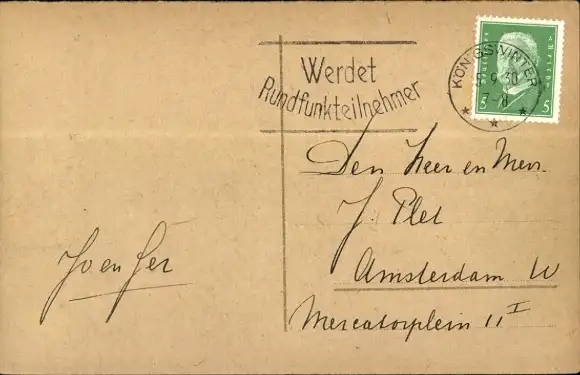 Werdet
Rundfunkteilnehmer
KÖNIGSWINTER
9.30
7-8
* * *
5 5
Den Heer en Mevr.
J. Plet
Amsterdam W
Mercatorplein 11 I
Jo en Ger